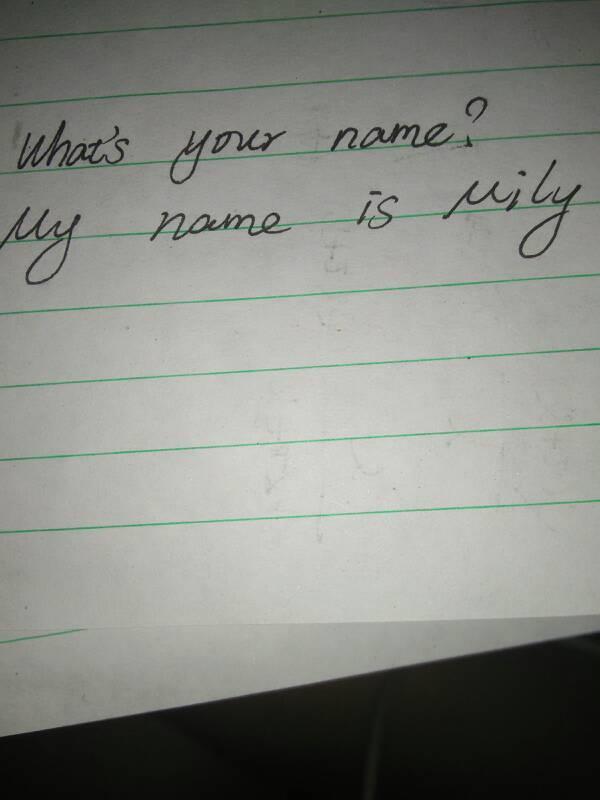 What's your name?
My name is Mily